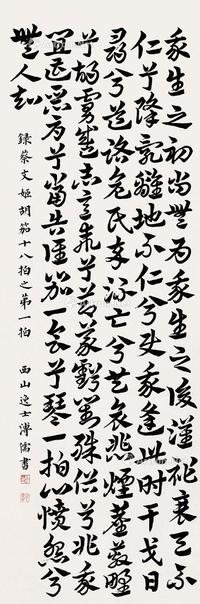 我生之初尚無為我生之後漢祚衰天不
仁兮降亂離地不仁兮使我逢此時干戈日
尋兮道路危民卒流亡兮共哀悲煙塵蔽野
兮胡虜盛志意乖兮節義虧對殊俗兮非我
宜遭惡辱兮當告誰笳一會兮琴一拍心憤怨兮
無人知
錄蔡文姬胡笳十八拍之第一拍 西山逸士溥儒書